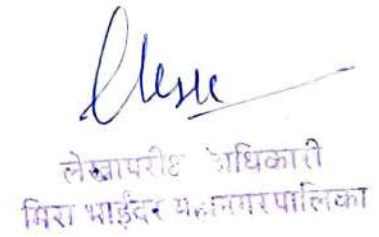 लेखापरीक्षा अधिकारी
मिरा भाईंदर महानगरपालिका